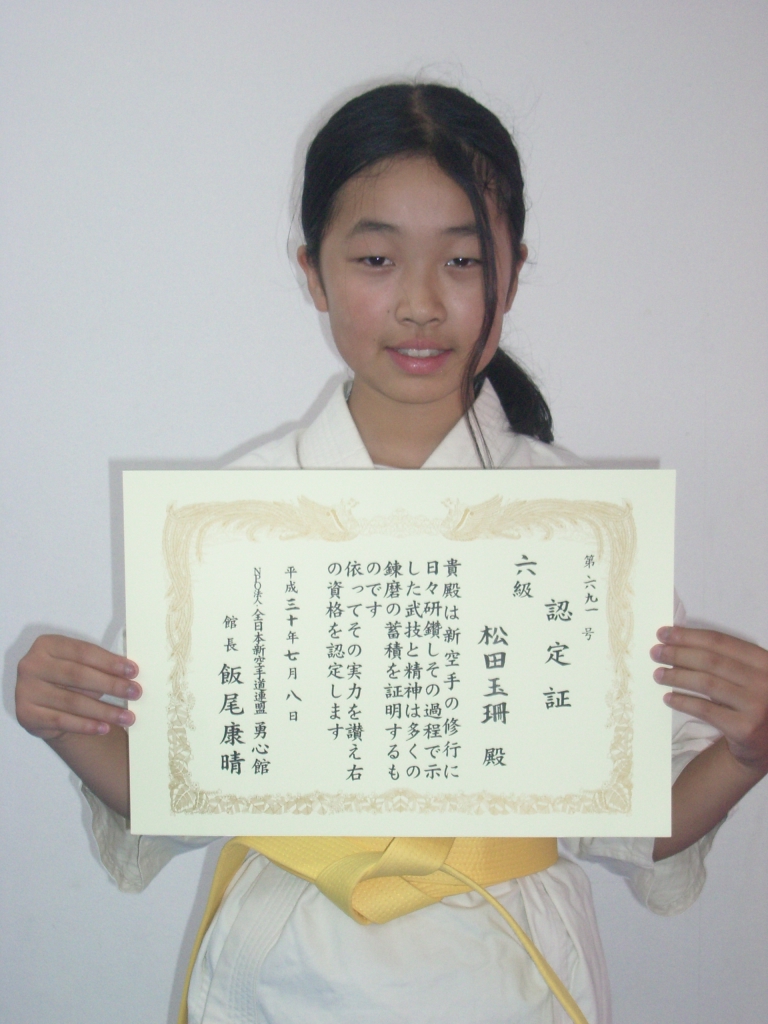 第六九一号
認定証
六級
松田玉珊 殿
貴殿は新空手の修行に
日々研鑽しその過程で示
した武技と精神は多くの
錬磨の蓄積を証明するも
のです
依ってその実力を讃え右
の資格を認定します
平成三十年七月八日
NPO法人 全日本新空手道連盟 勇心館
館長 飯尾康晴